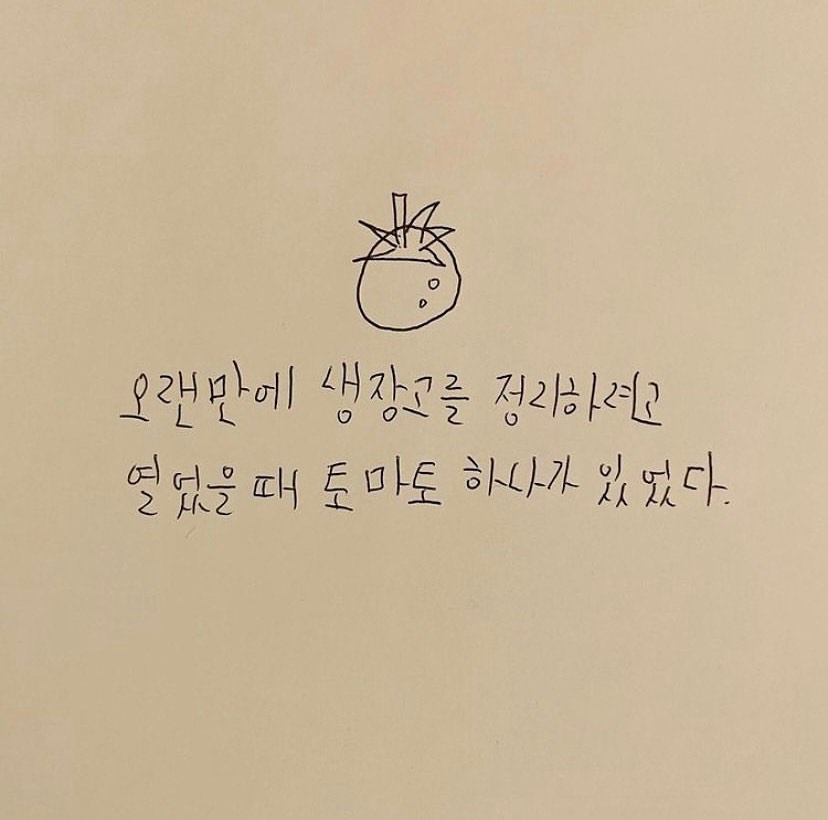 오랜만에 냉장고를 정리하려고
열었을때 토마토 하나가 있었다.